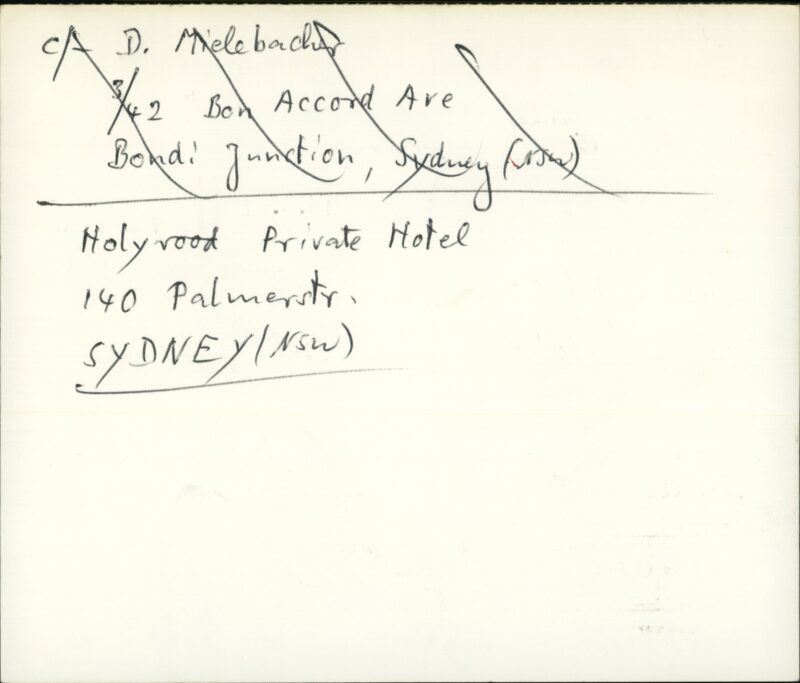 c/- D. Mielebacher
3/42 Bon Accord Ave
Bondi Junction, Sydney (NSW)
Holyrood Private Hotel
140 Palmerstr.
SYDNEY (NSW)